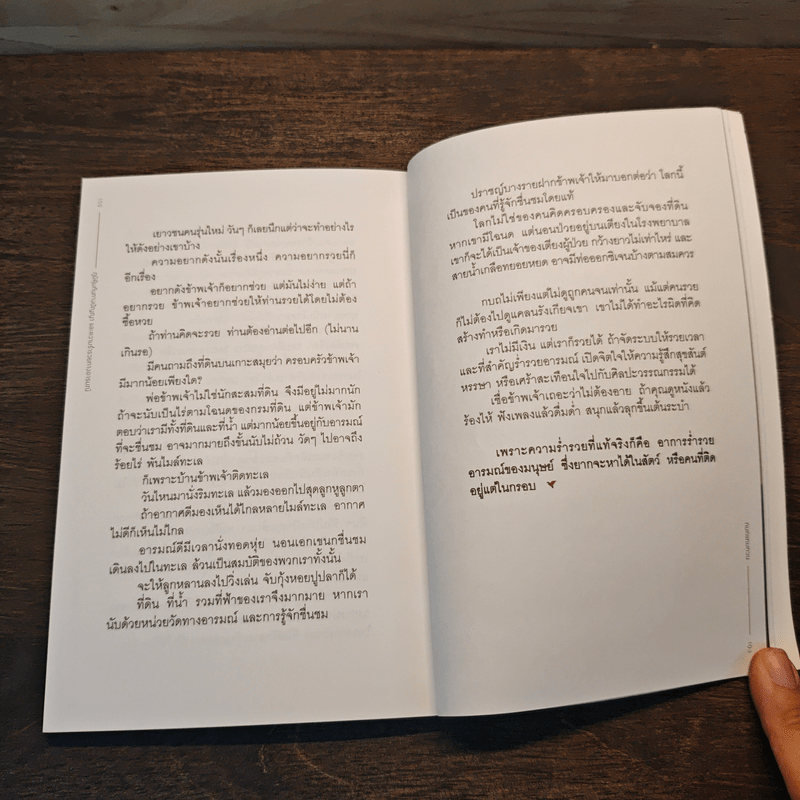 เยาวชนคนรุ่นใหม่ วันๆ ก็เลยนึกแต่ว่าจะทำอย่างไร
ให้ดังอย่างเขาบ้าง
ความอยากดังนั้นเรื่องหนึ่ง ความอยากรวยนี่ก็
อีกเรื่อง
อยากดังข้าพเจ้าก็อยากช่วย แต่มันไม่ง่าย แต่ถ้า
อยากรวย ข้าพเจ้าอยากช่วยให้ท่านรวยได้โดยไม่ต้อง
ซื้อหวย
ถ้าท่านคิดจะรวย ท่านต้องอ่านต่อไปอีก (ไม่นาน
เกินรอ)
มีคนถามถึงที่ดินบนเกาะสมุยว่า ครอบครัวข้าพเจ้า
มีมากน้อยเพียงใด?
พ่อข้าพเจ้าไม่ใช่นักสะสมที่ดิน จึงมีอยู่ไม่มากนัก
ถ้าจะนับเป็นไร่ตามโฉนดของกรมที่ดิน แต่ข้าพเจ้ามัก
ตอบว่าเรามีทั้งที่ดินและที่น้ำ แต่มากน้อยขึ้นอยู่กับอารมณ์
ที่จะชื่นชม อาจมากมายถึงขั้นนับไม่ถ้วน วัดๆ ไปอาจถึง
ร้อยไร่ พันไมล์ทะเล
ก็เพราะบ้านข้าพเจ้าติดทะเล
วันไหนมานั่งริมทะเล แล้วมองออกไปสุดลูกหูลูกตา
ถ้าอากาศดีมองเห็นได้ไกลหลายไมล์ทะเล อากาศ
ไม่ดีก็เห็นไม่ไกล
อารมณ์ดีมีเวลานั่งทอดหุ่ย นอนเอกเขนกชื่นชม
เดินลงไปในทะเล ล้วนเป็นสมบัติของพวกเราทั้งนั้น
จะให้ลูกหลานลงไปวิ่งเล่น จับกุ้งหอยปูปลาก็ได้
ที่ดิน ที่น้ำ รวมที่ฟ้าของเราจึงมากมาย หากเรา
นับด้วยหน่วยวัดทางอารมณ์ และการรู้จักชื่นชม
ปราชญ์บางรายฝากข้าพเจ้าให้มาบอกต่อว่า โลกนี้
เป็นของคนที่รู้จักชื่นชมโดยแท้
โลกไม่ใช่ของคนคิดครอบครองและจับจองที่ดิน
หากเขามีโฉนด แต่นอนป่วยอยู่บนเตียงในโรงพยาบาล
เขาก็จะได้เป็นเจ้าของเตียงผู้ป่วย กว้างยาวไม่เท่าไหร่ และ
สายน้ำเกลือทยอยหยด อาจมีท่อออกซิเจนบ้างตามสมควร
กบถไม่เพียงแต่ไม่ดูถูกคนจนเท่านั้น แม้แต่คนรวย
ก็ไม่ต้องไปดูแคลนรังเกียจเขา เขาไม่ได้ทำอะไรผิดที่คิด
สร้างทำหรือเกิดมารวย
เราไม่มีเงิน แต่เราก็รวยได้ ถ้าจัดระบบให้รวยเวลา
และที่สำคัญร่ำรวยอารมณ์ เปิดจิตใจให้ความรู้สึกสุขสันต์
หรรษา หรือเศร้าสะเทือนใจไปกับศิลปะวรรณกรรมได้
เชื่อข้าพเจ้าเถอะว่าไม่ต้องอาย ถ้าคุณดูหนังแล้ว
ร้องไห้ ฟังเพลงแล้วดื่มด่ำ สนุกแล้วลุกขึ้นเต้นระบำ
เพราะความร่ำรวยที่แท้จริงก็คือ อาการร่ำรวย
อารมณ์ของมนุษย์ ซึ่งยากจะหาได้ในสัตว์ หรือคนที่ติด
อยู่แต่ในกรอบ